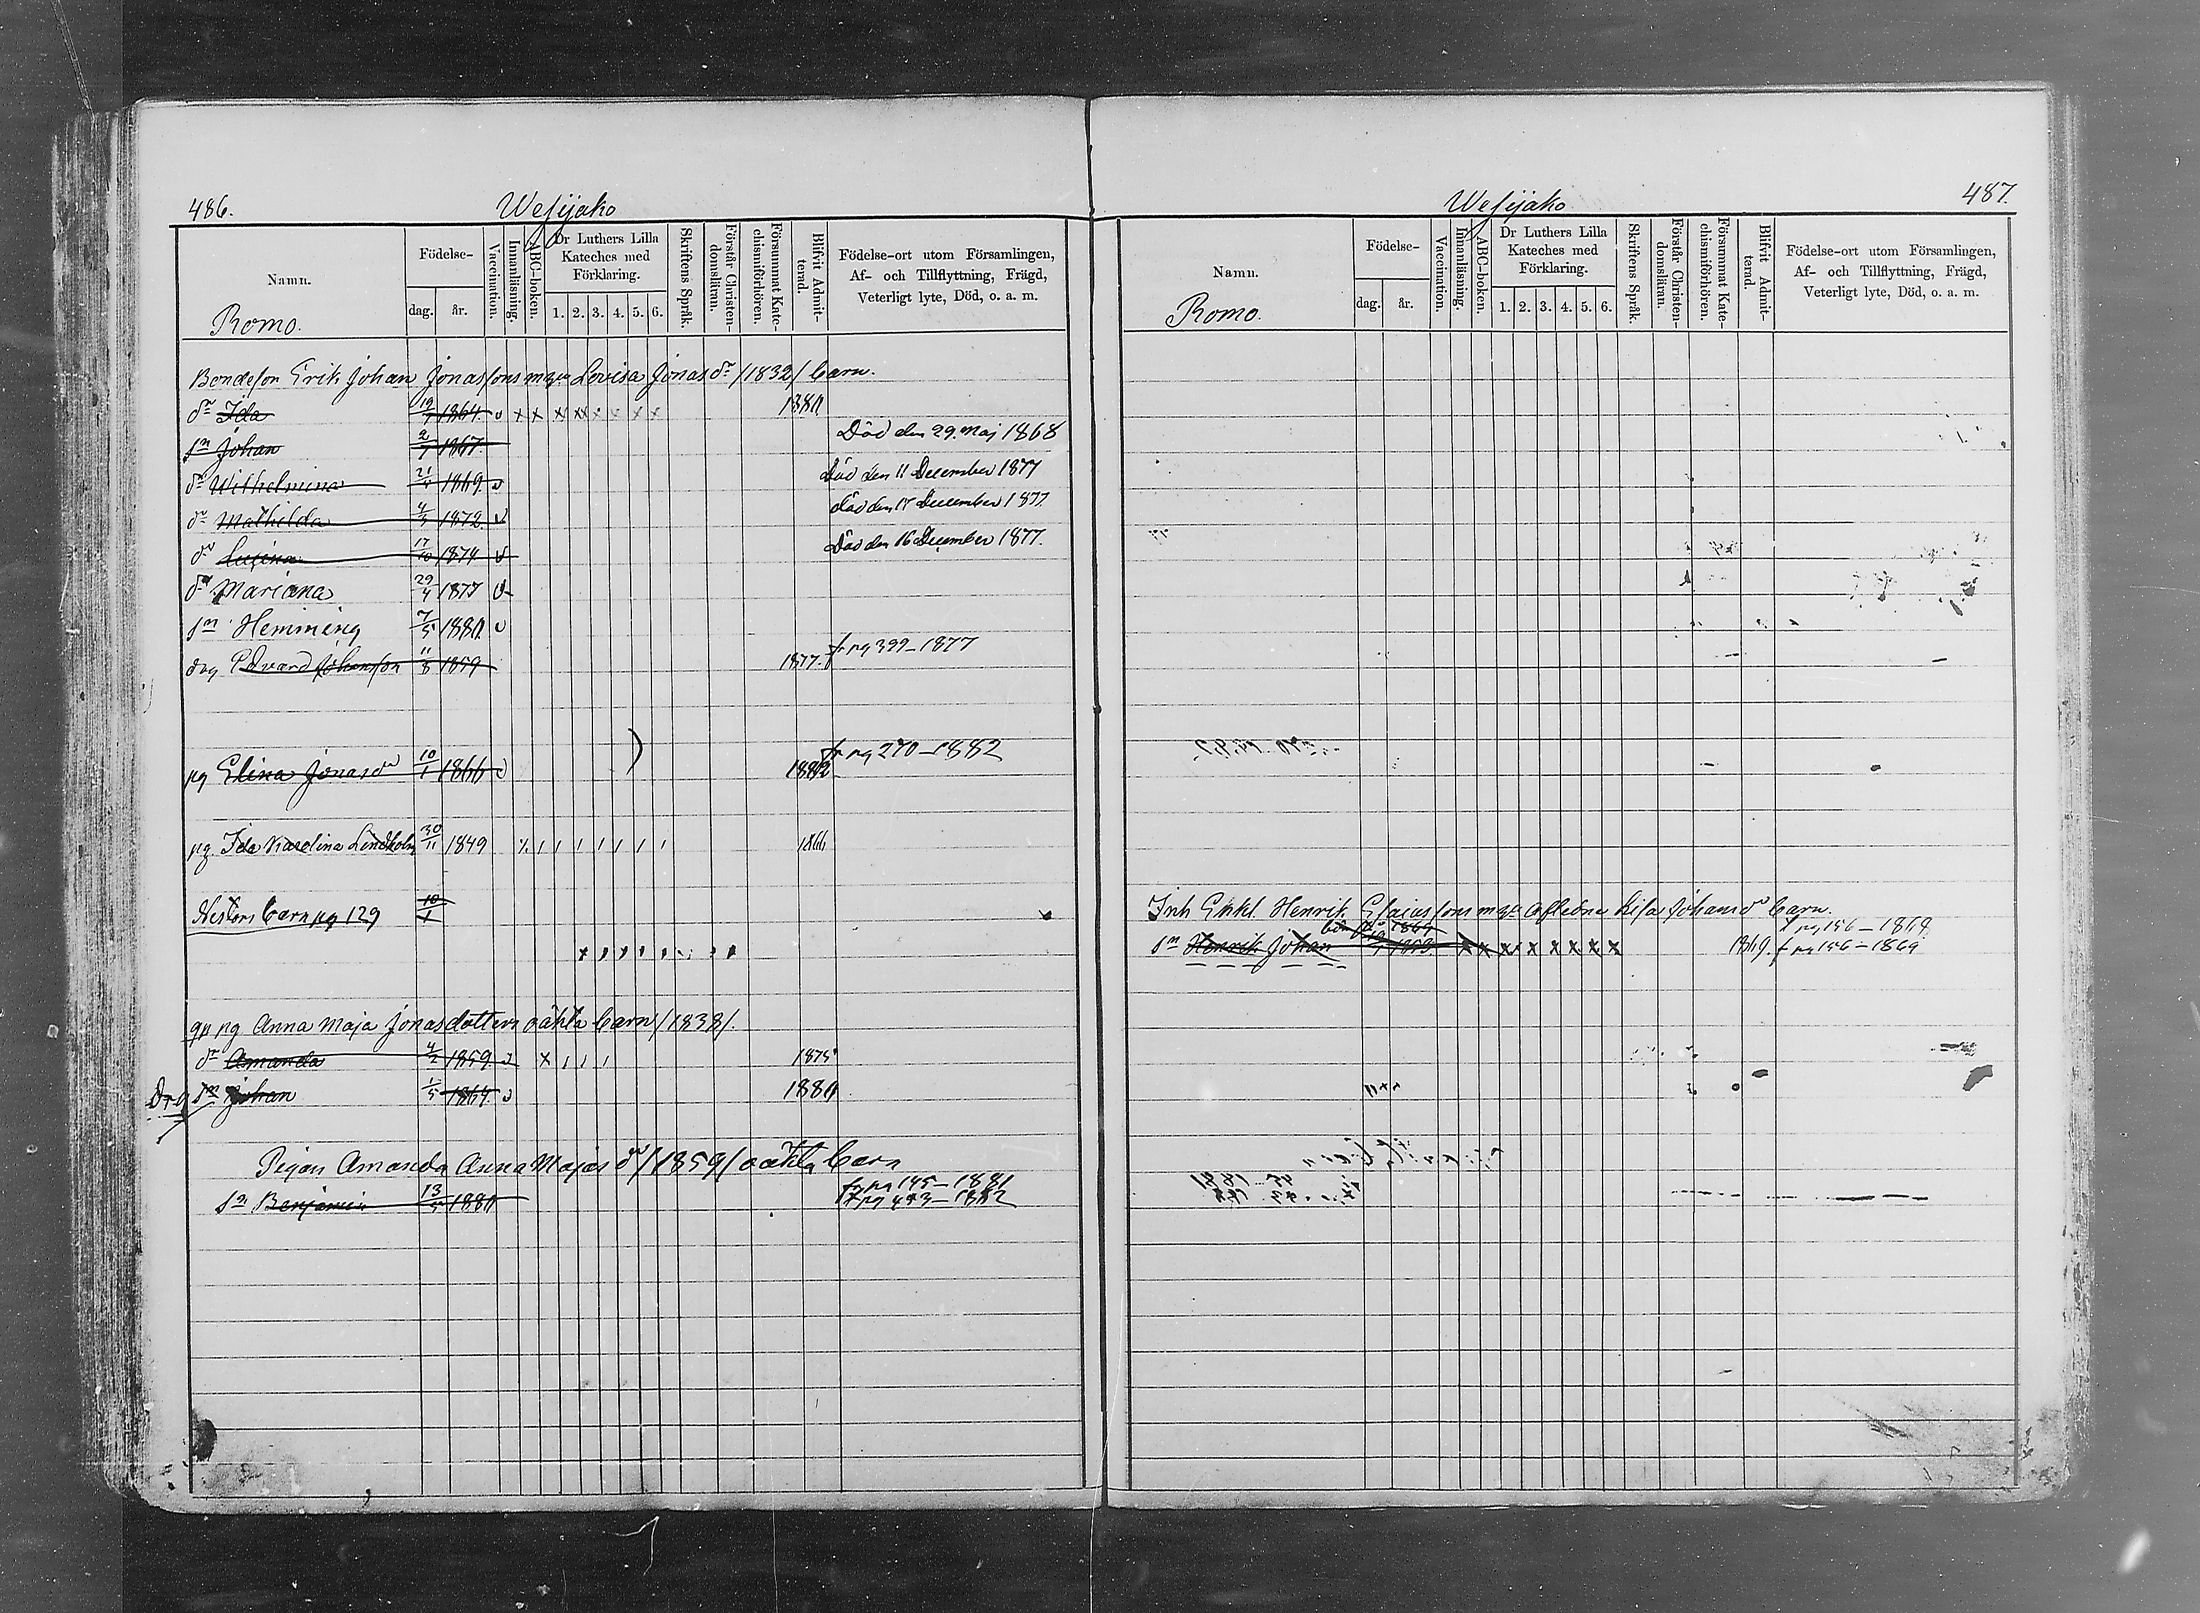 486.
Wesijako
Namn.
Födelse-
dag.
år.
Vaccination.
Innanläsning.
ABC-boken.
Dr Luthers Lilla
Kateches med
Förklaring.
1. 2. 3. 4. 5. 6.
Skriftens Språk.
Förstår Christen-
domsläran.
Försummat Kate-
chismiförhören.
Blifvit Admit-
terad.
Födelse-ort utom Församlingen,
Af- och Tillflyttning, Frägd,
Veterligt lyte, Död, o. a. m.
Romo.
Bondeson Erik Johan Jonassons m Lovisa Jonasdr /1832/ barn.
dr Ida 19/ 1864. v x x x x x x x x 1880
sn Johan 2/ 1867. Död den 29. Maj 1868
dr Wilhelmina 21/ 1869. v Död den 11 December 1877
dr Mathilda 4/3 1872. v död den 17 December 1877.
dr 17/10 1874 v Död den 16 December 1877.
dr Mariana 29/4 1877 v
sn Hemming 7/5 1880. v
drg Edvard Johansson 11/8 1859 1877. fr pg 399-1877
pg Elina Jonasdr 10/1 1866 v 1882 fr pg 270-1882
pg. Ida Karolina Lindholm 30/11 1849 1866
Nestors barn pg 129 10/1
gp pg Anna Maja Jonasdotters oäkta barn /1838/.
dr Amanda 4/2 1859. v x 1875
Drg sn Johan 1/5 1864. v 1880
Pigan Amanda Anna Majas dr /1859/ oäkta barn
fr pg 145-1881
sn Benjamin 13/5 1880 t pg 493-1882
487.
Wesijako
Namn.
Födelse-
dag.
år.
Vaccination.
Innanläsning.
ABC-boken.
Dr Luthers Lilla
Kateches med
Förklaring.
1. 2. 3. 4. 5. 6.
Skriftens Språk.
Förstår Christen-
domsläran.
Försummat Kate-
chismiförhören.
Blifvit Admit-
terad.
Födelse-ort utom Församlingen,
Af- och Tillflyttning, Frägd,
Veterligt lyte, Död, o. a. m.
Romo.
Inh Enkl. Henrik Esaiassons m aflidna Lisa Johansdr barn.
t pg 156-1868
sn Henrik Johan x x x x x x x x 1869. f pg 156-1869